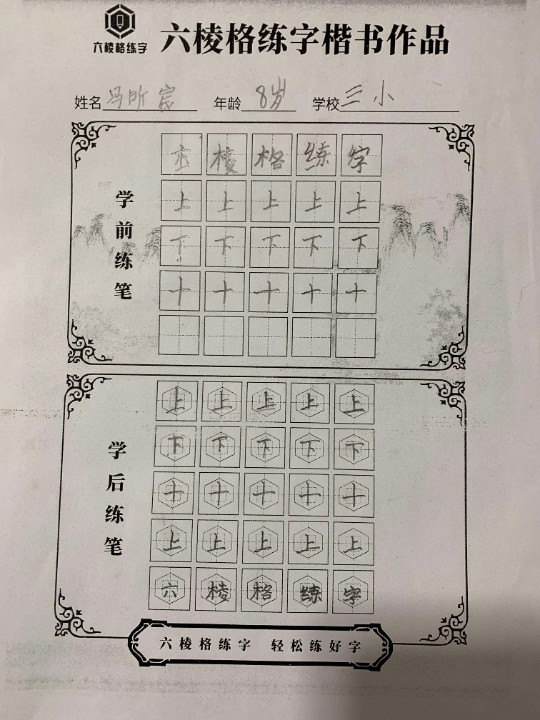 六棱格练字
六棱格练字楷书作品
姓名 冯昕宸 年龄 8岁 学校 三小
学前练笔
六棱格练字
上上上上上
下下下下下
十十十十十
学后练笔
上上上上上
下下下下下
十十十十十
上上上上上
六棱格练字
六棱格练字 轻松练好字